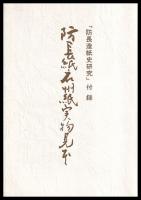 「防長造紙史研究」付録
防長紙石州紙実物見本